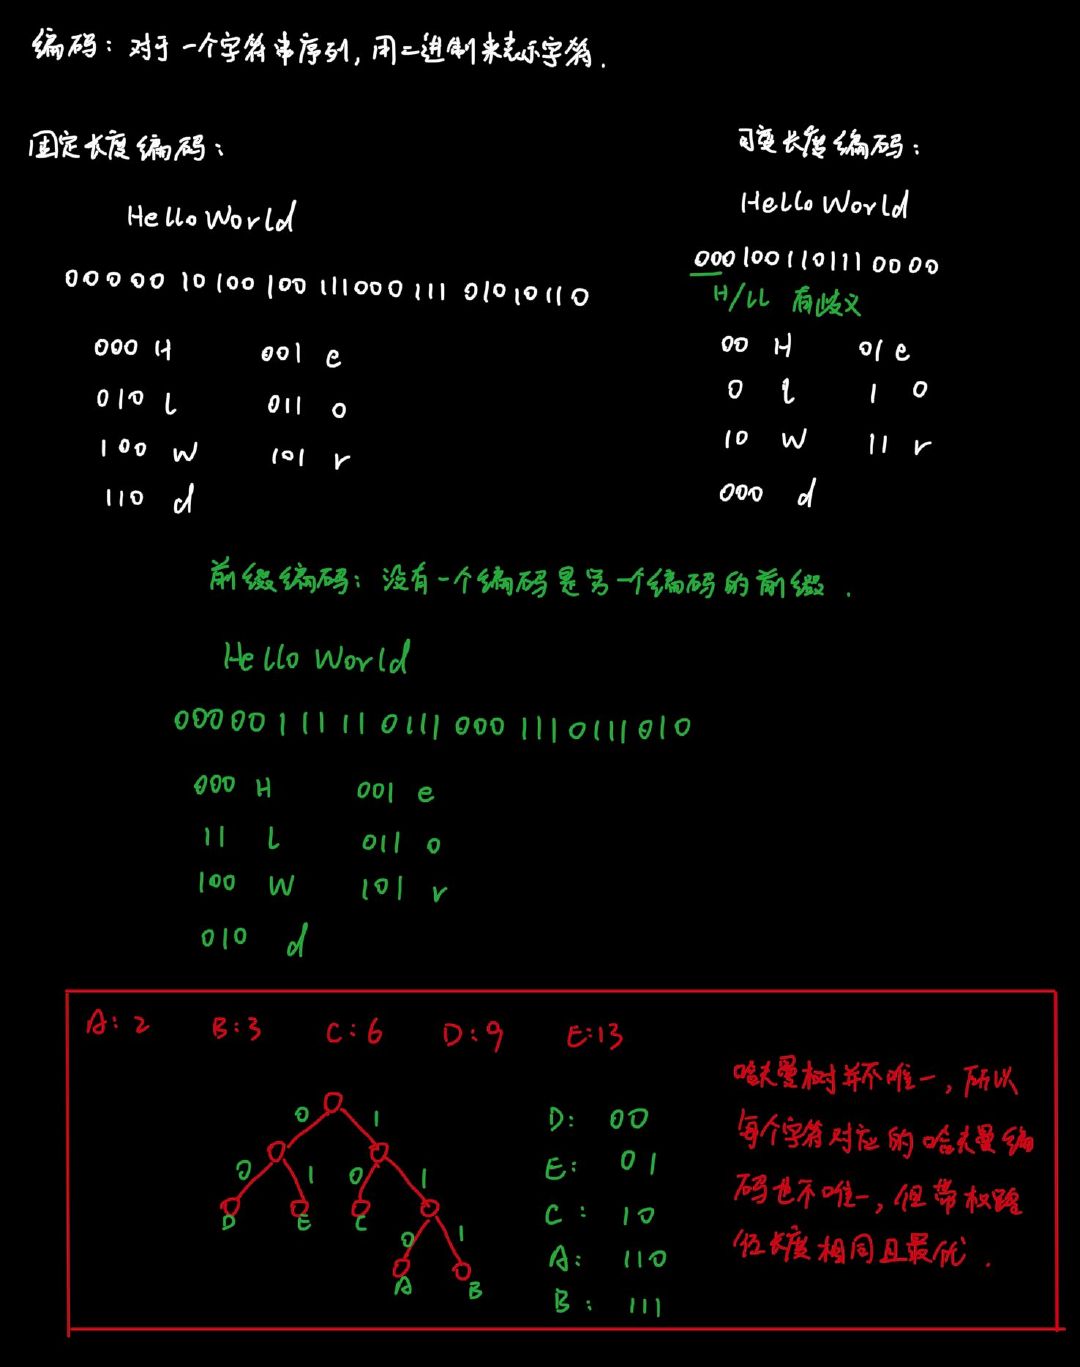 编码：对于一个字符串序列，用二进制来表示字符.
固定长度编码：
Hello World
00000 10100 100 111000 111 01010110
000 H 001 e
010 L 011 o
100 W 101 r
110 d
可变长度编码：
Hello World
000100110111 0000
H/LL 有歧义
00 H 01 e
0 l 1 o
10 W 11 r
000 d
前缀编码：没有一个编码是另一个编码的前缀.
Hello World
00000111110111000111011010
000 H 001 e
11 L 011 o
100 W 101 r
010 d
A: 2 B: 3 C: 6 D: 9 E: 13
0 1
0 1 0 1
D E C
0 1
A B
D: 00
E: 01
C: 10
A: 110
B: 111
哈夫曼树并不唯一，所以
每个字符对应的哈夫曼编
码也不唯一，但带权路
径长度相同且最优.